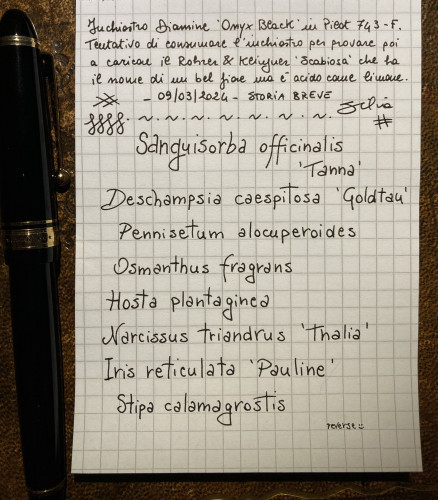 Inchiostro Diamine 'Onyx Black' in Pilot 743-F.
Tentativo di consumare l'inchiostro per provare poi
a caricare il Rohrer & Klingner 'Scabiosa' che ha
il nome di un bel fiore ma è acido come limone.
- 09/03/2024 - STORIA BREVE
Silvia
#
Sanguisorba officinalis
'Tanna'
Deschampsia caespitosa 'Goldtau'
Pennisetum alocuperoides
Osmanthus fragrans
Hosta plantaginea
Narcissus triandrus 'Thalia'
Iris reticulata 'Pauline'
Stipa calamagrostis
reverse